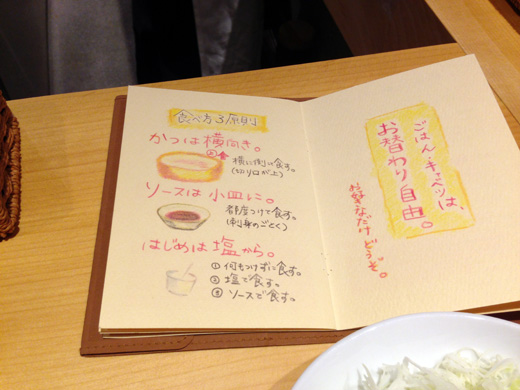 食べ方3原則
かつは横向き。
横に倒して食す。
(切り口が上)
ソースは小皿に。
都度つけて食す。
(刺身のごとく)
はじめは塩から。
① 何もつけずに食す。
② 塩で食す。
③ ソースで食す。
ごはん・キャベツは、
お替わり自由。
お好きなだけどうぞ。